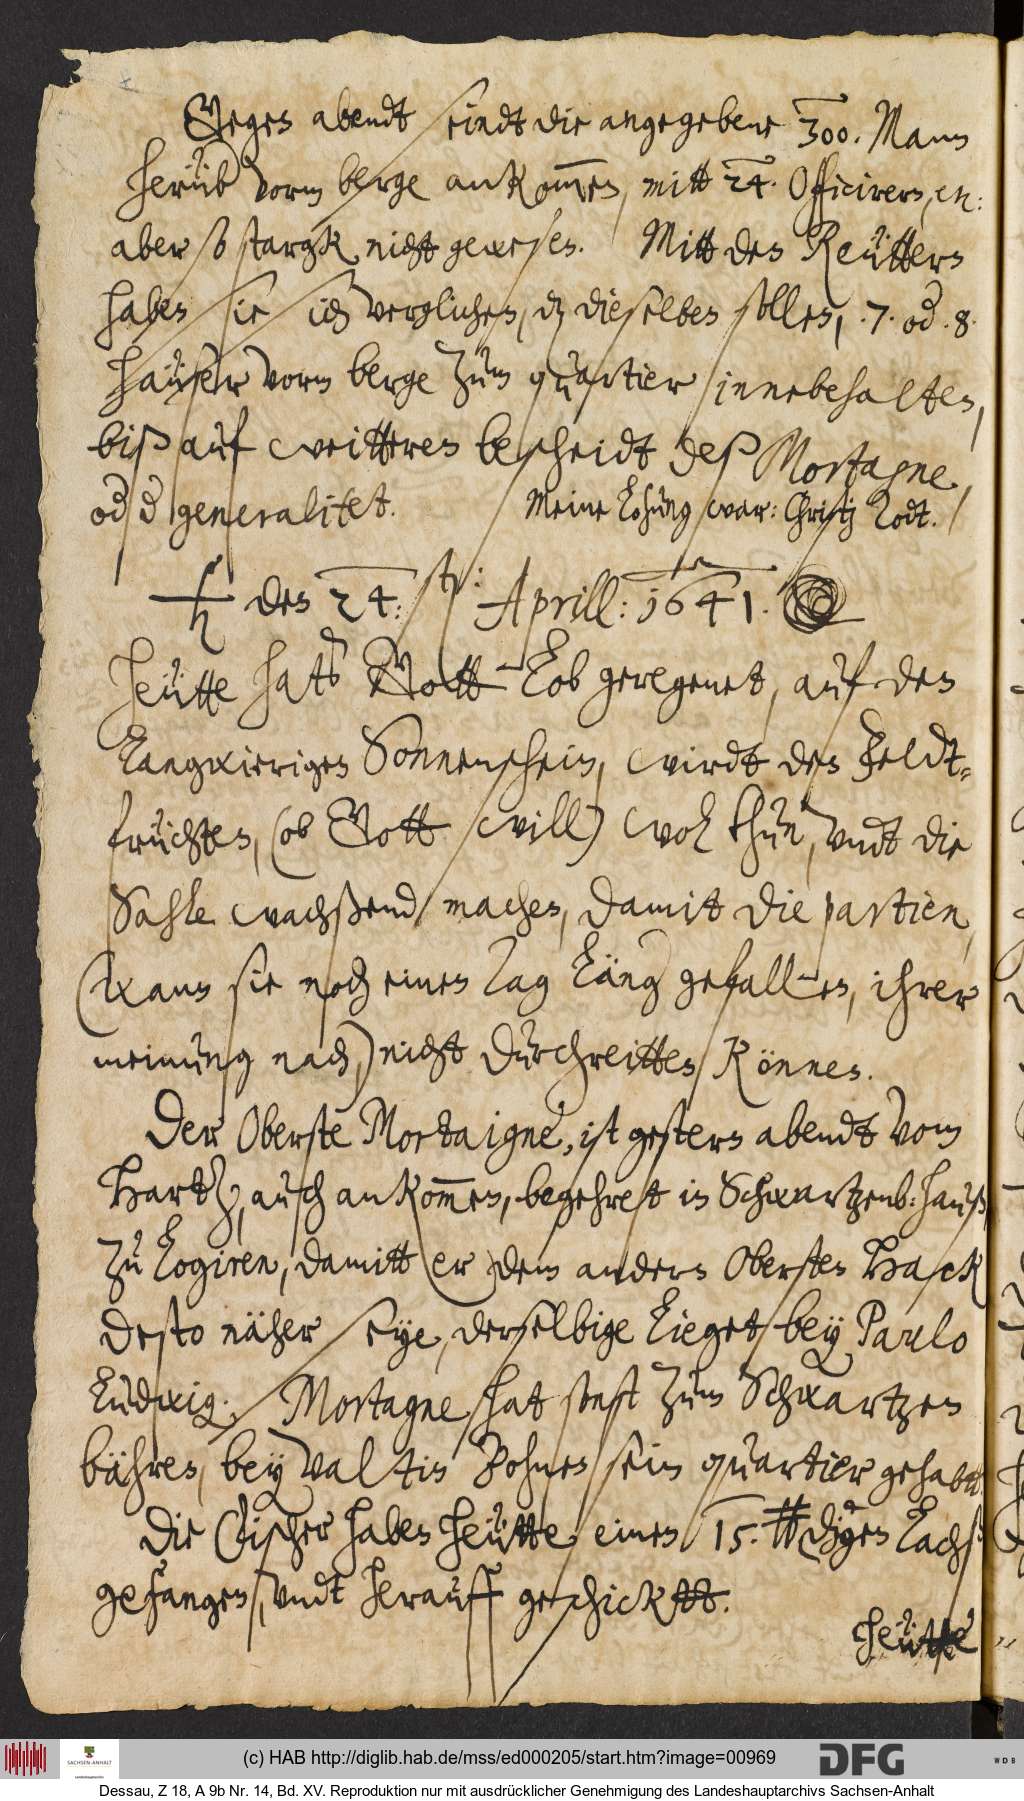 Gegen abendt seindt die angegebene 300. Mann
herüber vorm berge ankommen, mitt 24. Officirern,
aber so stargk nicht gewesen. Mitt den Reüttern
haben sie sich verglichen, dz dieselben sollen, 7. od. 8.
haüser vorm berge zum quartier innebehalten,
biß auf weitteren bescheidt deß Mortagne,
od d generalitet. Meine Losung war: Christj Todt.
♄ den 24. st: Aprill: 1641.
Heütte hats Gott Lob geregenet, auf den
Langwierigen Sonnenschein, wirdt den Feldt-
fruchten, (ob Gott will) wol thun, undt die
Sahle wachßend machen, damit die partien,
(wann sie noch einen Tag Läng gefallen, ihrer
meinung nach,) nicht durchreitten können.
Der Oberste Mortaigne, ist gestern abendt vom
Hartz, auch ankommen, begehret in Schwartzenb: hauß,
zu Logiren, damitt er dem andern Obersten Hack
desto näher seye, derselbige Lieget bey Paulo
Ludwig. Mortagne hat sonst zum Schwartzen
bähren, bey Valtin Bohnen sein quartier gehabtt.
Die Fischer haben heütte einen 15. ℔digen Lachß
gefangen, undt herauff geschicktt.
Heütte
(c) HAB http://diglib.hab.de/mss/ed000205/start.htm?image=00969
SACHSEN-ANHALT
DFG
WDB
Dessau, Z 18, A 9b Nr. 14, Bd. XV. Reproduktion nur mit ausdrücklicher Genehmigung des Landeshauptarchivs Sachsen-Anhalt